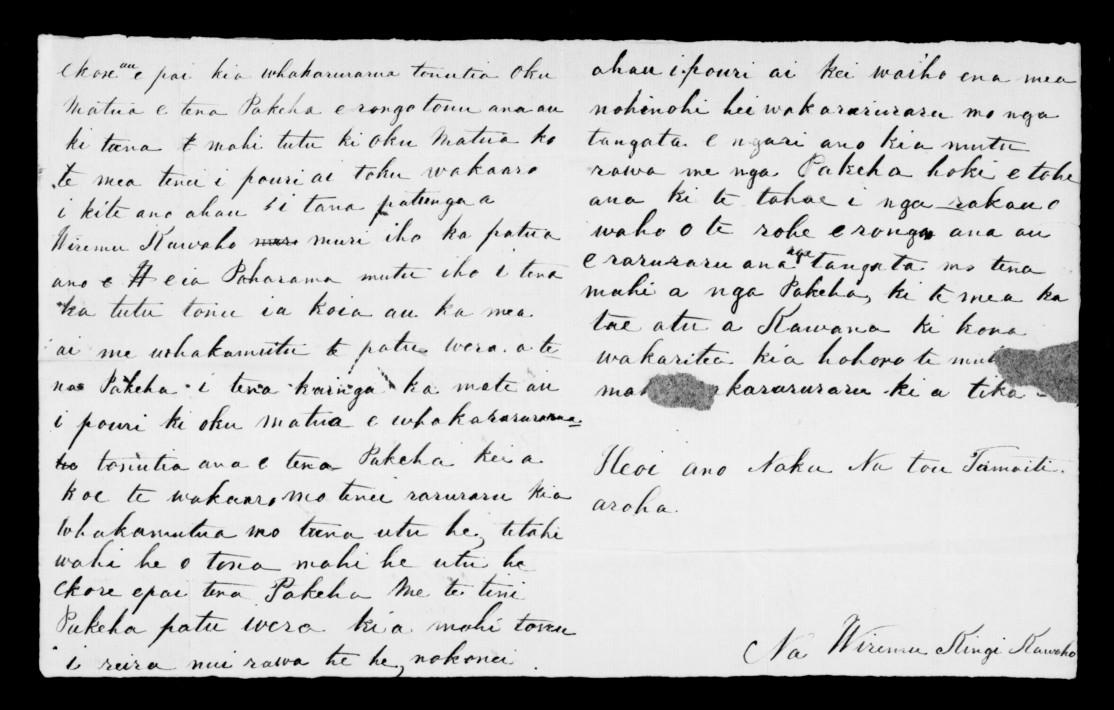 ekore au e pai kia whakararurarua tonutia oku
Matua e tena Pakeha e rongo tonu ana au
ki tana mahi tutu ki oku Matua ko
te mea tenei i pouri ai toku wakaaro
i kite ano ahau i tana patunga a
Wiremu Kawaho muri iho ka patua
ano e ia Poharama mutu iho i tena
ka tutu tonu ia koia au ka mea
ai me whakamutu te patu wera a te
na Pakeha i tena kainga ka mate au
i pouri ki oku matua e whakararurarua
tonutia ana e tena Pakeha kei a
koe te wakaaro mo tenei raruraru kia
Whakamutua mo tana utu he, tetahi
wahi he o tona mahi he utu he
ekore e pai tena Pakeha me te tini
Pakeha patu wera kia mahi tonu
i reira nui rawa te he, nokonei
ahau i pouri ai kei waiho ena mea
nohinohi hei wakararuraru mo nga
tangata e ngari ano kia mutu
rawa me nga Pakeha hoki e tohe
ana ki te tahae i nga rakau o
waho o te rohe e rongo ana au
e raruraru ana nga tangata mo tena
mahi a nga Pakeha, ki te mea ka
tae atu a Kawana ki kona
wakaritea kia hohoro te
kararuraru kia tika -
Heoi ano Naku Na tou Tamaiti
aroha.
Na Wiremu Kingi Kawaho